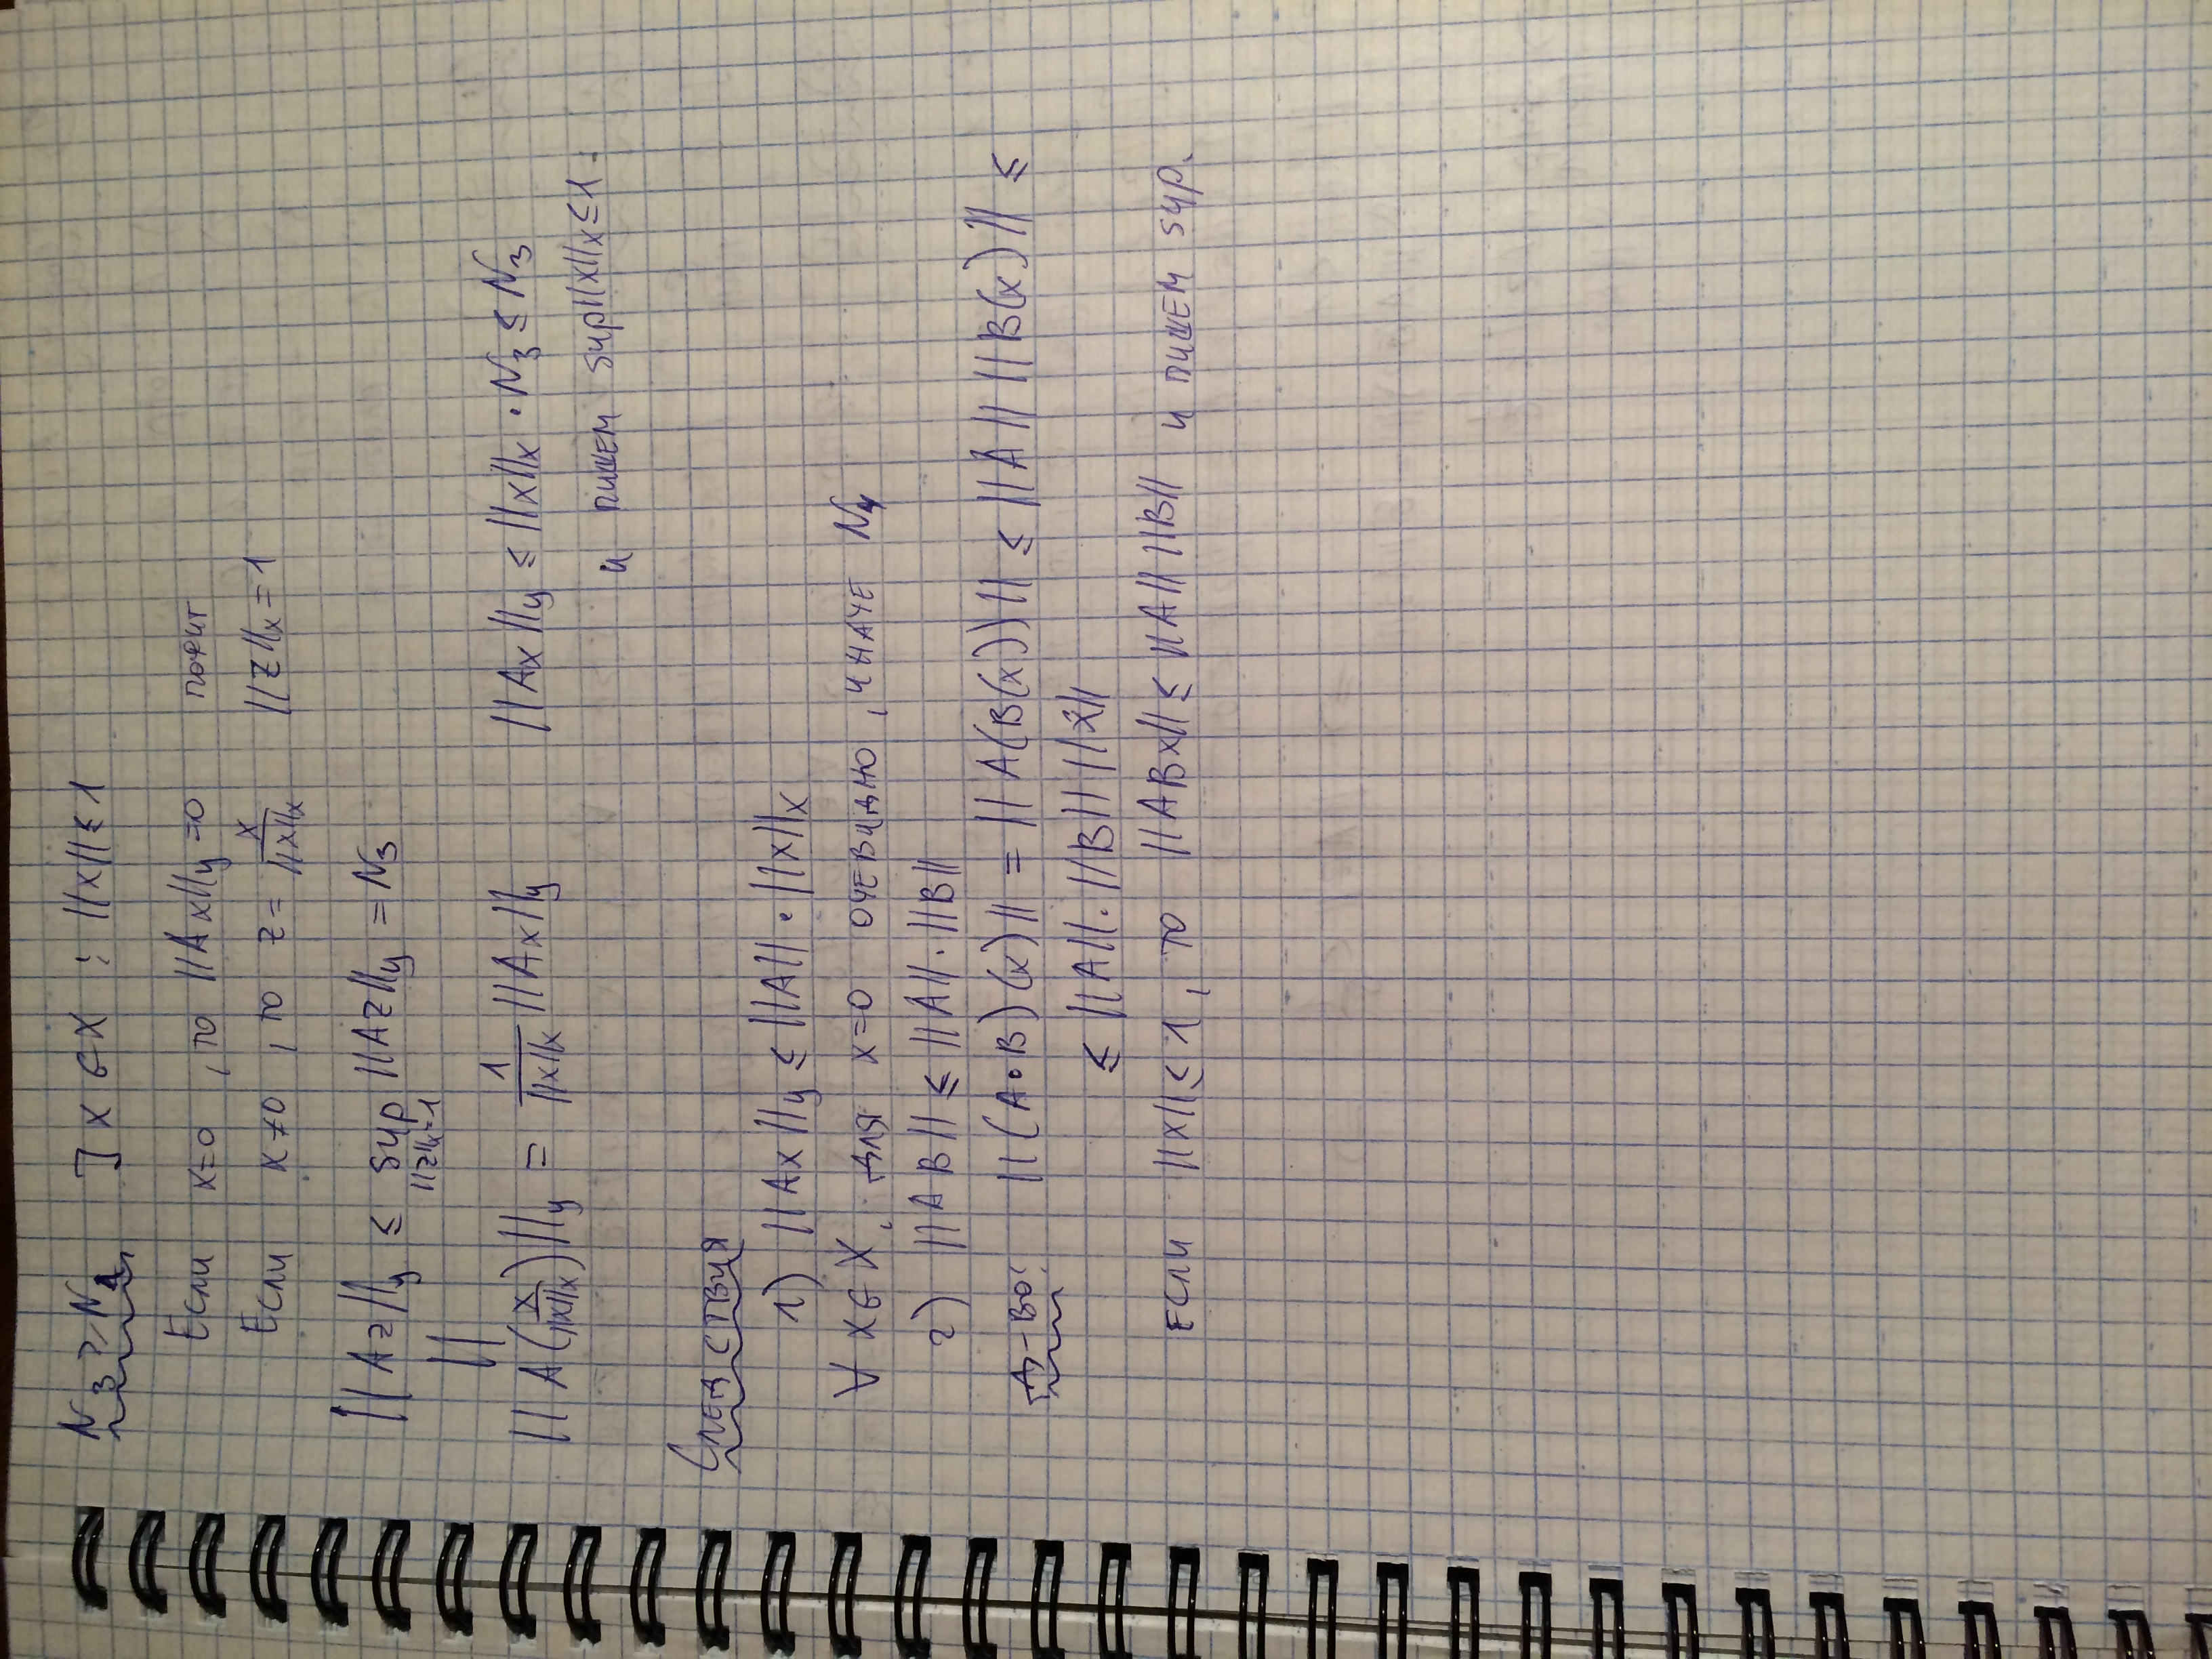 N₃ ≥ N₁ ] x ∈ X : ||x|| ≤ 1
Если x=0 , то ||Ax||_y =0 похит
Если x≠0 , то z = x/||x||ₓ ||z||ₓ = 1
||Az||_y ≤ sup_{||z||ₓ=1} ||Az||_y = N₃
||
||A(x/||x||ₓ)||_y = 1/||x||ₓ ||Ax||_y ||Ax||_y ≤ ||x||ₓ · N₃ ≤ N₃
и пишем sup||x||ₓ≤1.
Следствия
1) ||Ax||_y ≤ ||A|| · ||x||ₓ
∀ x ∈ X, для x=0 очевидно, иначе N₄
2) ||AB|| ≤ ||A|| · ||B||
Д-во: ||(A∘B)(x)|| = ||A(B(x))|| ≤ ||A|| ||B(x)|| ≤
≤ ||A|| · ||B|| ||x||
Если ||x|| ≤ 1, то ||ABx|| ≤ ||A|| ||B|| и пишем sup.